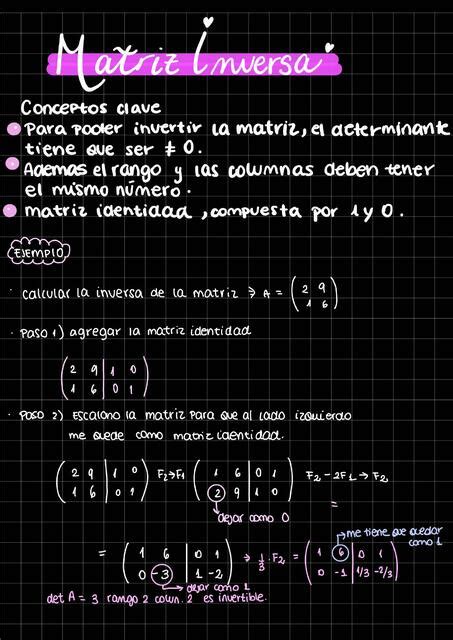 Matriz inversa
Conceptos clave
Para poder invertir la matriz, el determinante
tiene que ser ≠ 0.
Ademas el rango y las columnas deben tener
el mismo número.
matriz identidad, compuesta por 1 y 0.
EJEMPLO
calcular la inversa de la matriz → A = ( 2 9
1 6 )
Paso 1) agregar la matriz identidad
( 2 9 | 1 0
1 6 | 0 1 )
Paso 2) Escalono la matriz para que al lado izquierdo
me quede como matriz identidad.
( 2 9 | 1 0 F2→F1 ( 1 6 | 0 1 F2 - 2F1 → F2
1 6 | 0 1 ) 2 9 | 1 0 ) =
dejar como 0
me tiene que quedar
como 1
= ( 1 6 | 0 1 → 1/3 · F2 = ( 1 6 | 0 1
0 -3 | 1 -2 ) 0 -1 | 1/3 -2/3 )
dejar como 1
det A = 3 rango 2 colun. 2 es invertible.